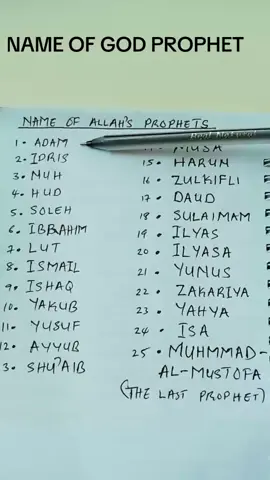 NAME OF GOD PROPHET
NAME OF ALLAH'S PROPHETS
1. ADAM
2. IDRIS
3. NUH
4. HUD
5. SOLEH
6. IBBAHIM
7. LUT
8. ISMAIL
9. ISHAQ
10. YAKUB
11. YUSUF
12. AYYUB
3. SHU'AIB
MUSA
15. HARUN
16. ZULKIFLI
17. DAUD
18. SULAIMAM
19. ILYAS
20. ILYASA
21. YUNUS
22. ZAKARIYA
23. YAHYA
24. ISA
25. MUHMMAD-
AL-MUSTOFA
(THE LAST PROPHET)